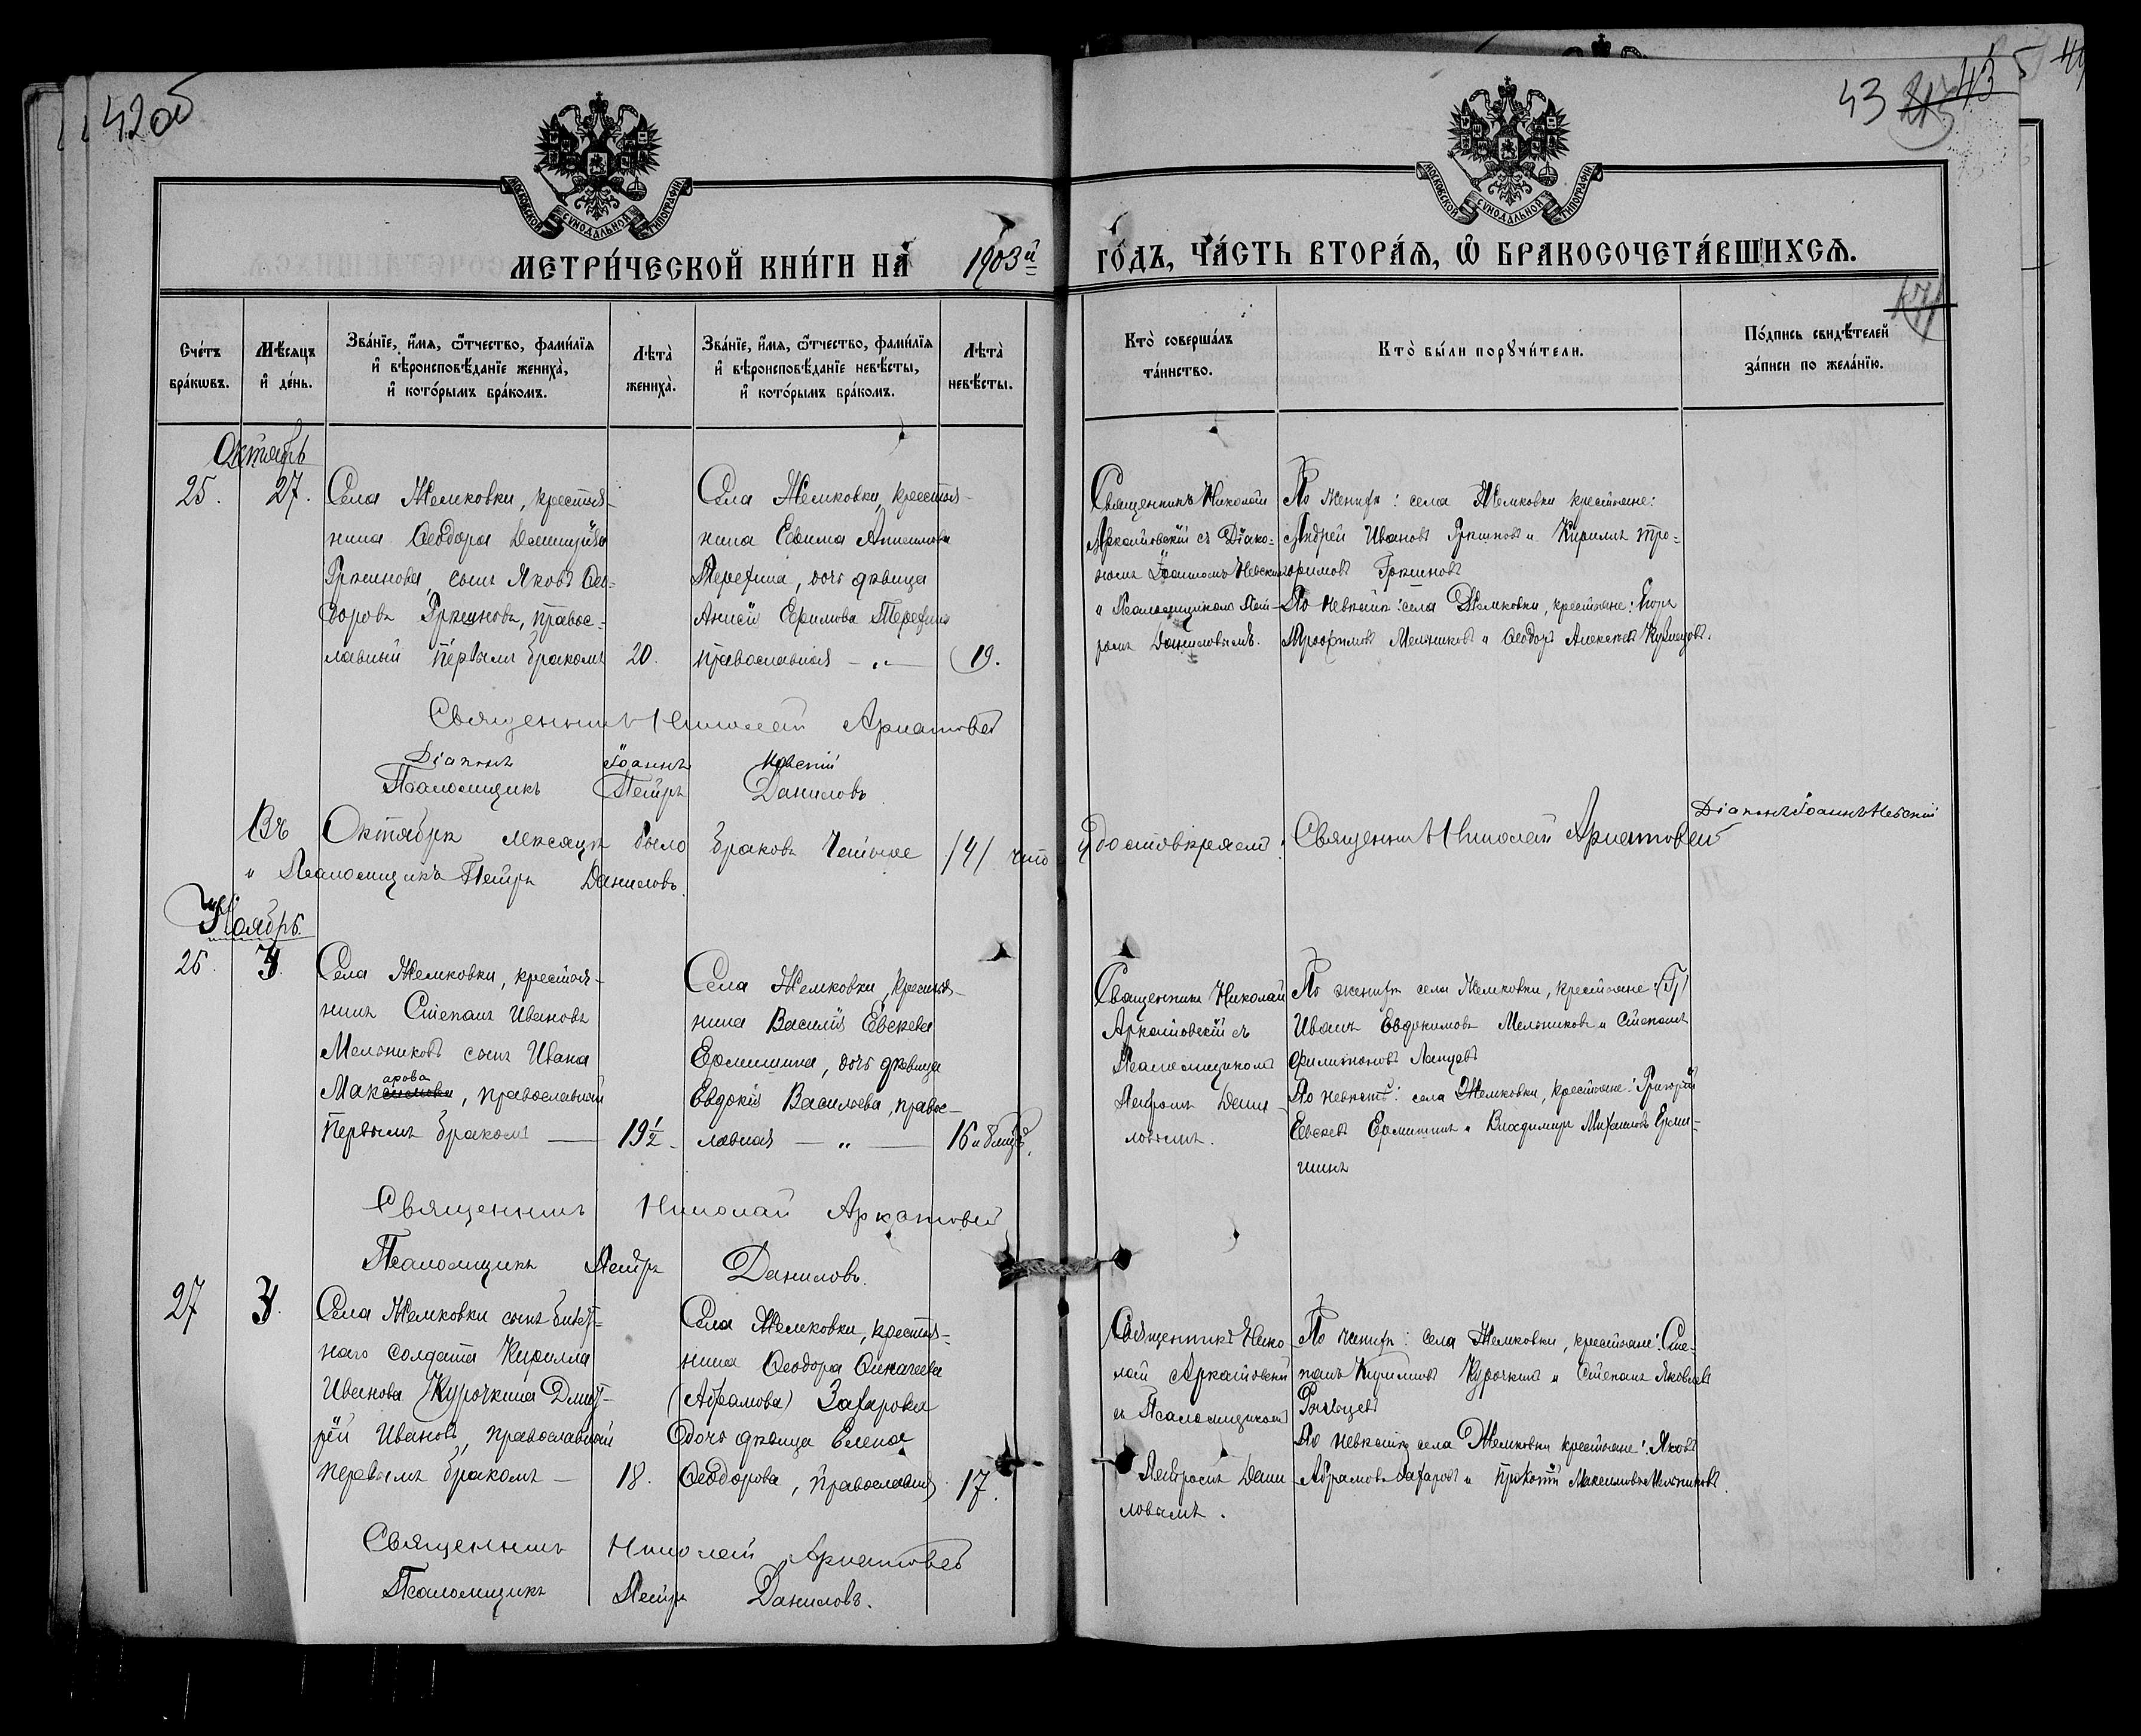 42об
43
43
МОСКОВСКОЙ СѴНОДАЛЬНОЙ ТИПОГРАФІИ
МОСКОВСКОЙ СѴНОДАЛЬНОЙ ТИПОГРАФІИ
МЕТРИ́ЧЕСКОЙ КНИ́ГИ НА 1903й ГО́ДЪ, ЧА́СТЬ ВТОРА́Я, Ѽ БРАКОСОЧЕТА́ВШИХСѦ.
Сче́тъ бра́кѡвъ.
Мѣ́сѧцъ и҆ де́нь.
Зва́нїе, и҆́мѧ, ѻ҆́тчество, фами́лїѧ и҆ вѣроисповѣ́данїе жениха̀, и҆ кото́рымъ бра́комъ.
Лѣта̀ жениха̀.
Зва́нїе, и҆́мѧ, ѻ҆́тчество, фами́лїѧ и҆ вѣроисповѣ́данїе невѣ́сты, и҆ кото́рымъ бра́комъ.
Лѣта̀ невѣ́сты.
Кто̀ соверша́лъ та́инство.
Кто̀ бы́ли порꙋчи́тели.
По́дпись свидѣ́телей за́писи по жела́нїю.
Октябрь
25.
27.
Села Жемковки, крестья-
нина Ѳеодора
сынъ Яковъ Ѳео-
доровъ правос-
лавный первымъ бракомъ
20.
Села Жемковки, крестья-
нина Ефима Анисимова
дочь дѣвица
Ефимова
православная — „ —
19.
Священникъ Николай
Аркатовскій съ Діако-
номъ Іоанномъ Невскимъ
и Псаломщикомъ Пет-
ромъ Даниловымъ.
По женихѣ: села Жемковки крестьяне:
Андрей Ивановъ и Кирилъ Тро-
фимовъ
По невѣстѣ: села Жемковки, крестьяне: Егоръ
Трофимовъ Мельниковъ и Ѳеодоръ Алексѣевъ Кузнецовъ.
Священникъ Николай
Діаконъ Іоаннъ Невскій
Псаломщикъ Петръ Даниловъ
Въ Октябрѣ месяцѣ было браковъ четыре /4/ что удостовѣряемъ: Священникъ Николай
Діаконъ Іоаннъ Невскій
и Псаломщикъ Петръ Даниловъ.
Ноябрь.
26.
Села Жемковки, крестья-
нинъ Степанъ Ивановъ
Мельниковъ сынъ Ивана
арова
Мак , православный
первымъ бракомъ —
19½
Села Жемковки, крестья-
нина Василія Евсеева
Ермишина, дочь дѣвица
Евдокія Васильева, правос-
лавная — „ —
16 и 8 мѣс.
Священникъ Николай
Аркатовскій съ
Псаломщикомъ
Петромъ Дани-
ловымъ.
По женихѣ села Жемковки, крестьяне:
Иванъ Евдокимовъ Мельниковъ и Степанъ
Филимоновъ
По невѣстѣ: села Жемковки, крестьяне: Григорій
Евсеевъ Ермишинъ и Владимиръ Михайловъ Ерми-
шинъ
Священникъ Николай
Псаломщикъ Петръ Даниловъ.
27
Села Жемковки сынъ билет-
наго солдата Кирилла
Иванова Курочкина Дмит-
рій Ивановъ, православный
первымъ бракомъ —
18.
Села Жемковки, крестья-
нина Ѳеодора
(Абрамова) Захарова
дочь дѣвица Елена
Ѳеодорова, православная
17.
Священникъ Нико-
лай Аркатовскій
съ Псаломщикомъ
Петромъ Дани-
ловымъ.
По женихѣ: села Жемковки, крестьяне: Сте-
панъ Кирилловъ Курочкинъ и Степанъ Яковлевъ
По невѣстѣ села Жемковки крестьяне: Яковъ
Абрамовъ Захаровъ и Прокопій Максимовъ Мельниковъ.
Священникъ Николай
Псаломщикъ Петръ Даниловъ.